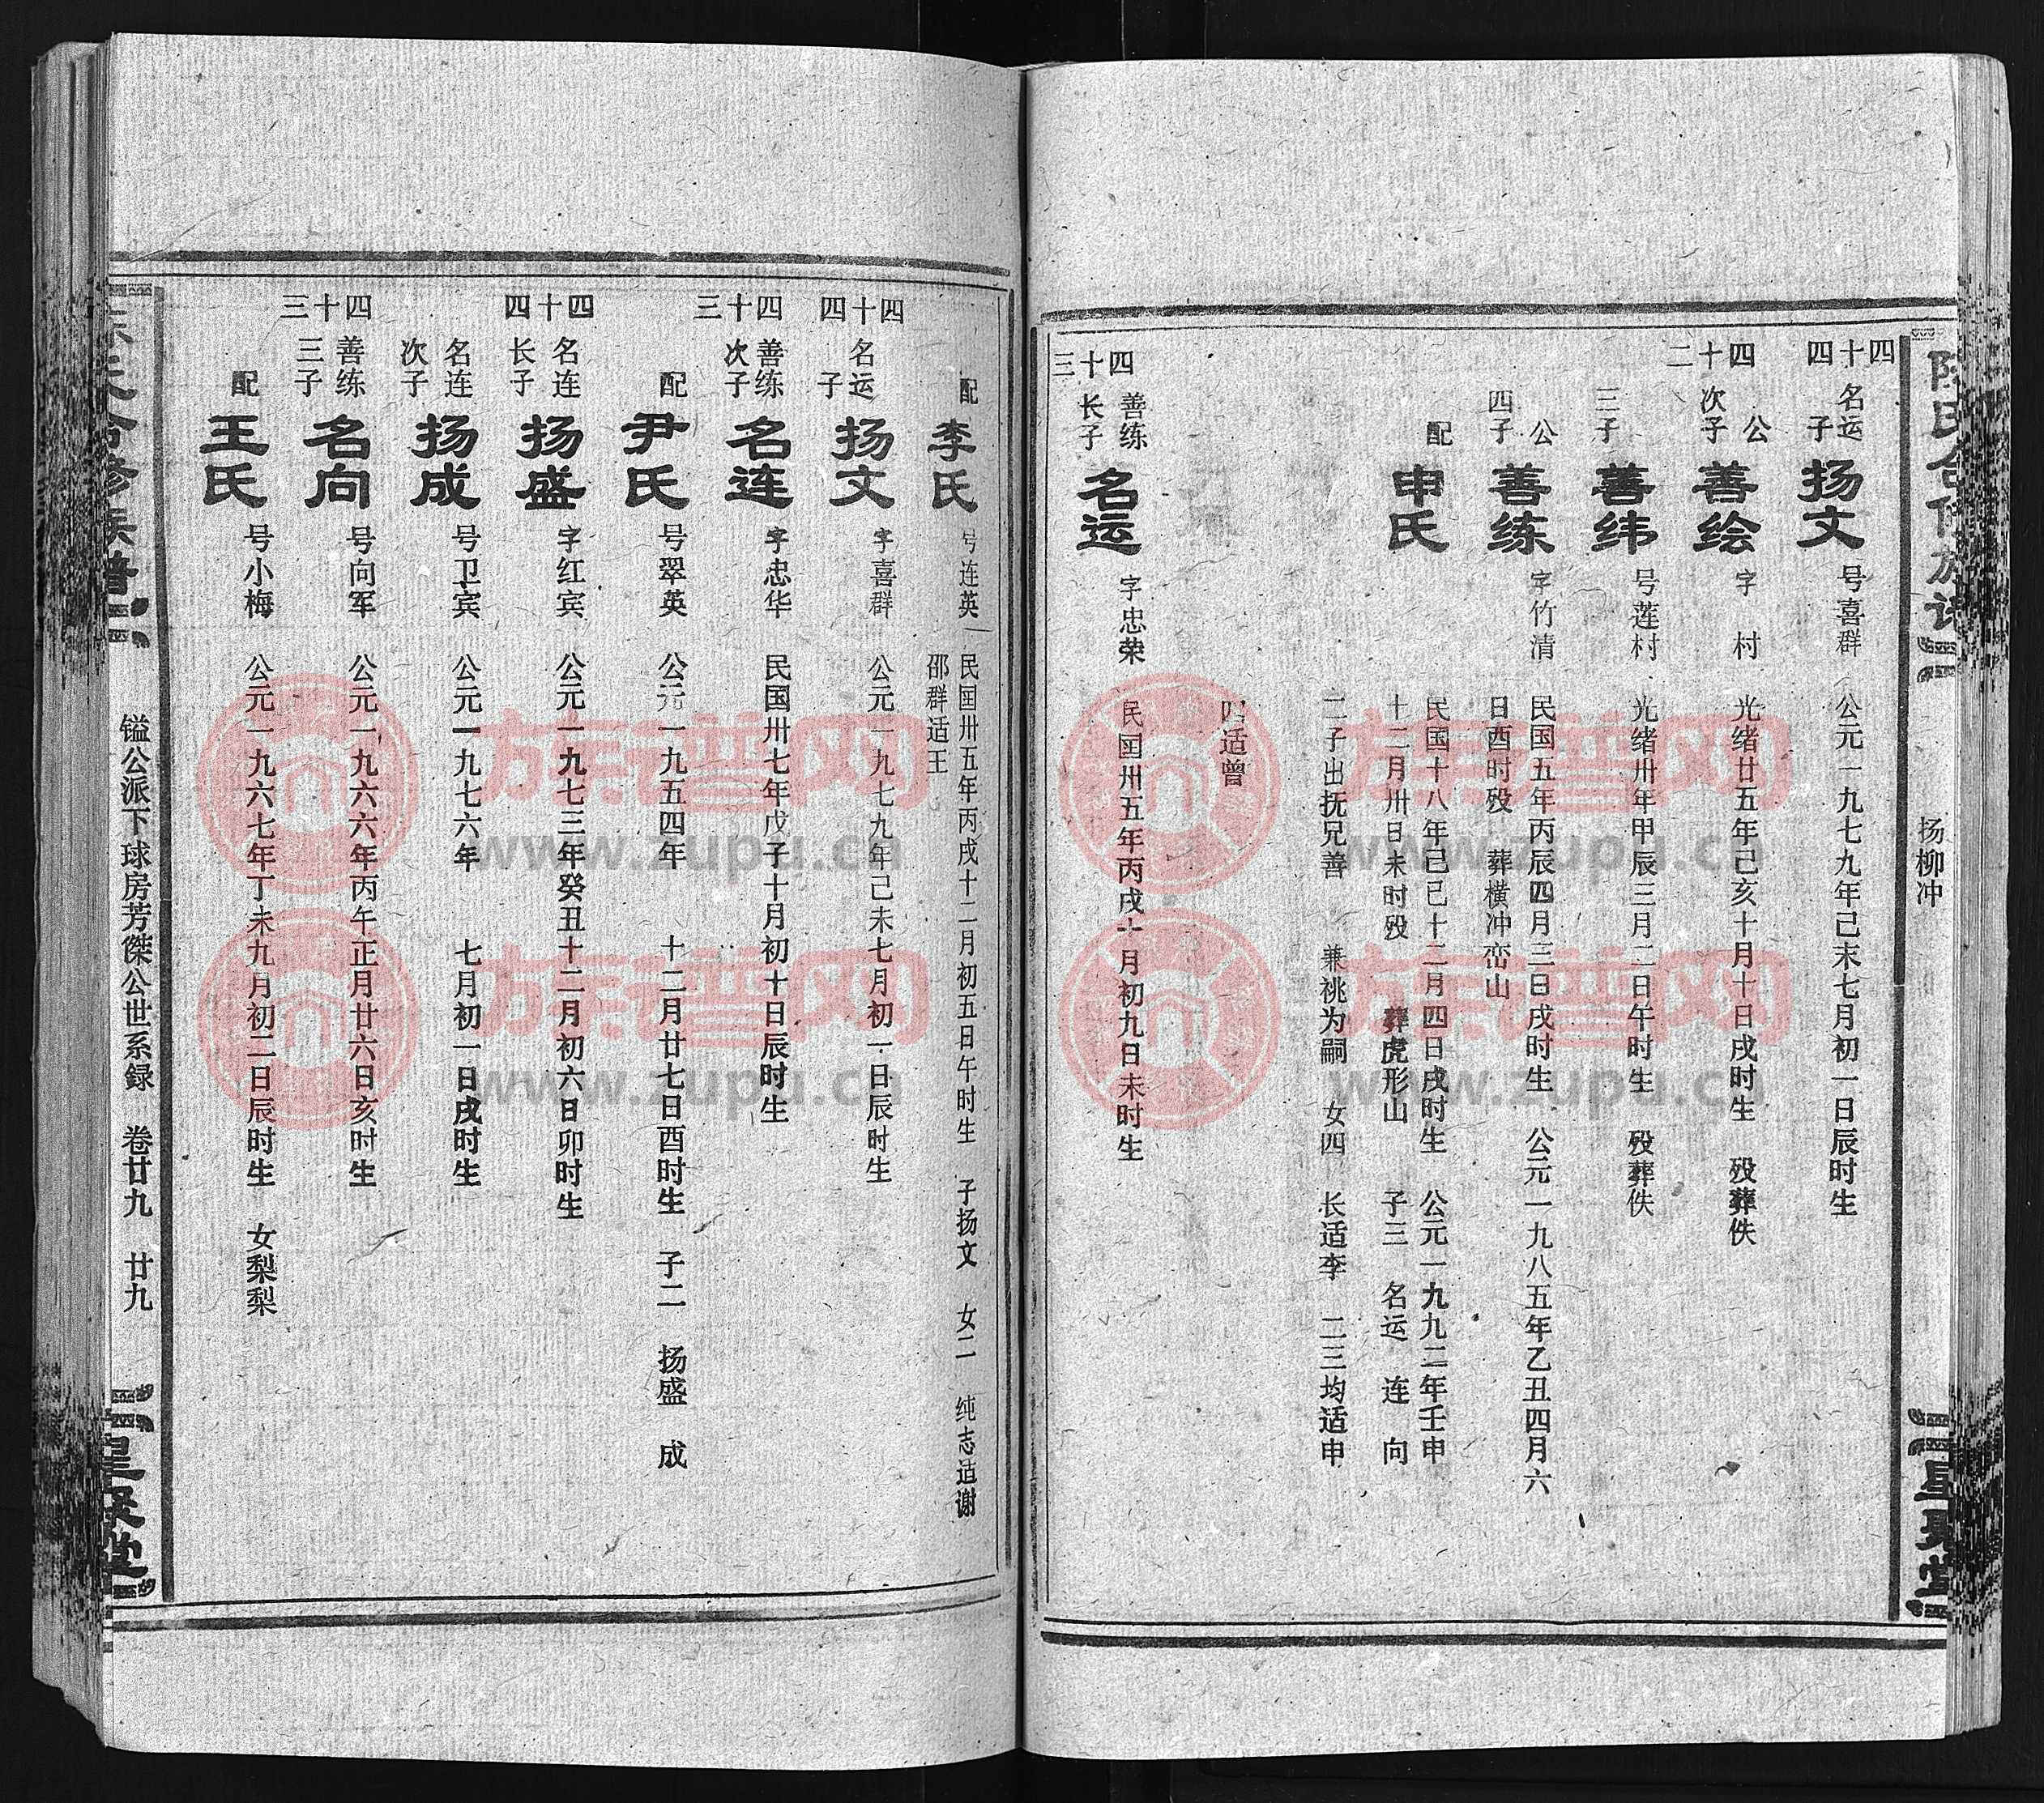 陈氏合修族谱
扬柳冲
星聚堂
四十四
名运子
扬文
号喜群
公元一九七九年己未七月初一日辰时生
四十二
公次子
善绘
字 村
光绪廿五年己亥十月十日戌时生 殁葬佚
三子
善纬
号莲村
光绪卅年甲辰三月二日午时生 殁葬佚
公四子
善练
字竹清
民国五年丙辰四月三日戌时生 公元一九八五年乙丑四月六
日酉时殁 葬横冲峦山
配
申氏
民国十八年己巳十二月四日戌时生 公元一九九二年壬申
十二月卅日未时殁 葬虎形山 子三 名运 连 向
二子出抚兄善 兼祧为嗣 女四 长适李 二三均适申
四适曾
四十三
善练长子
名运
字忠荣
民国卅五年丙戌十月初九日未时生
配
李氏
号连英
民国卅五年丙戌十二月初五日午时生 子扬文 女二 纯志适谢
邵群适王
四十四
名运子
扬文
字喜群
公元一九七九年己未七月初一日辰时生
四十三
善练次子
名连
字忠华
民国卅七年戊子十月初十日辰时生
配
尹氏
号翠英
公元一九五四年 十二月廿七日酉时生 子二 扬盛 成
四十四
名连长子
扬盛
字红宾
公元一九七三年癸丑十二月初六日卯时生
名连次子
扬成
号卫宾
公元一九七六年 七月初一日戌时生
四十三
善练三子
名向
号向军
公元一九六六年丙午正月廿六日亥时生
配
王氏
号小梅
公元一九六七年丁未九月初二日辰时生 女梨梨
陈氏合修族谱
镒公派下球房芳傑公世系録 卷廿九 廿九
星聚堂
族谱网
www.zupu.cn
族谱网
www.zupu.cn
族谱网
www.zupu.cn
族谱网
www.zupu.cn